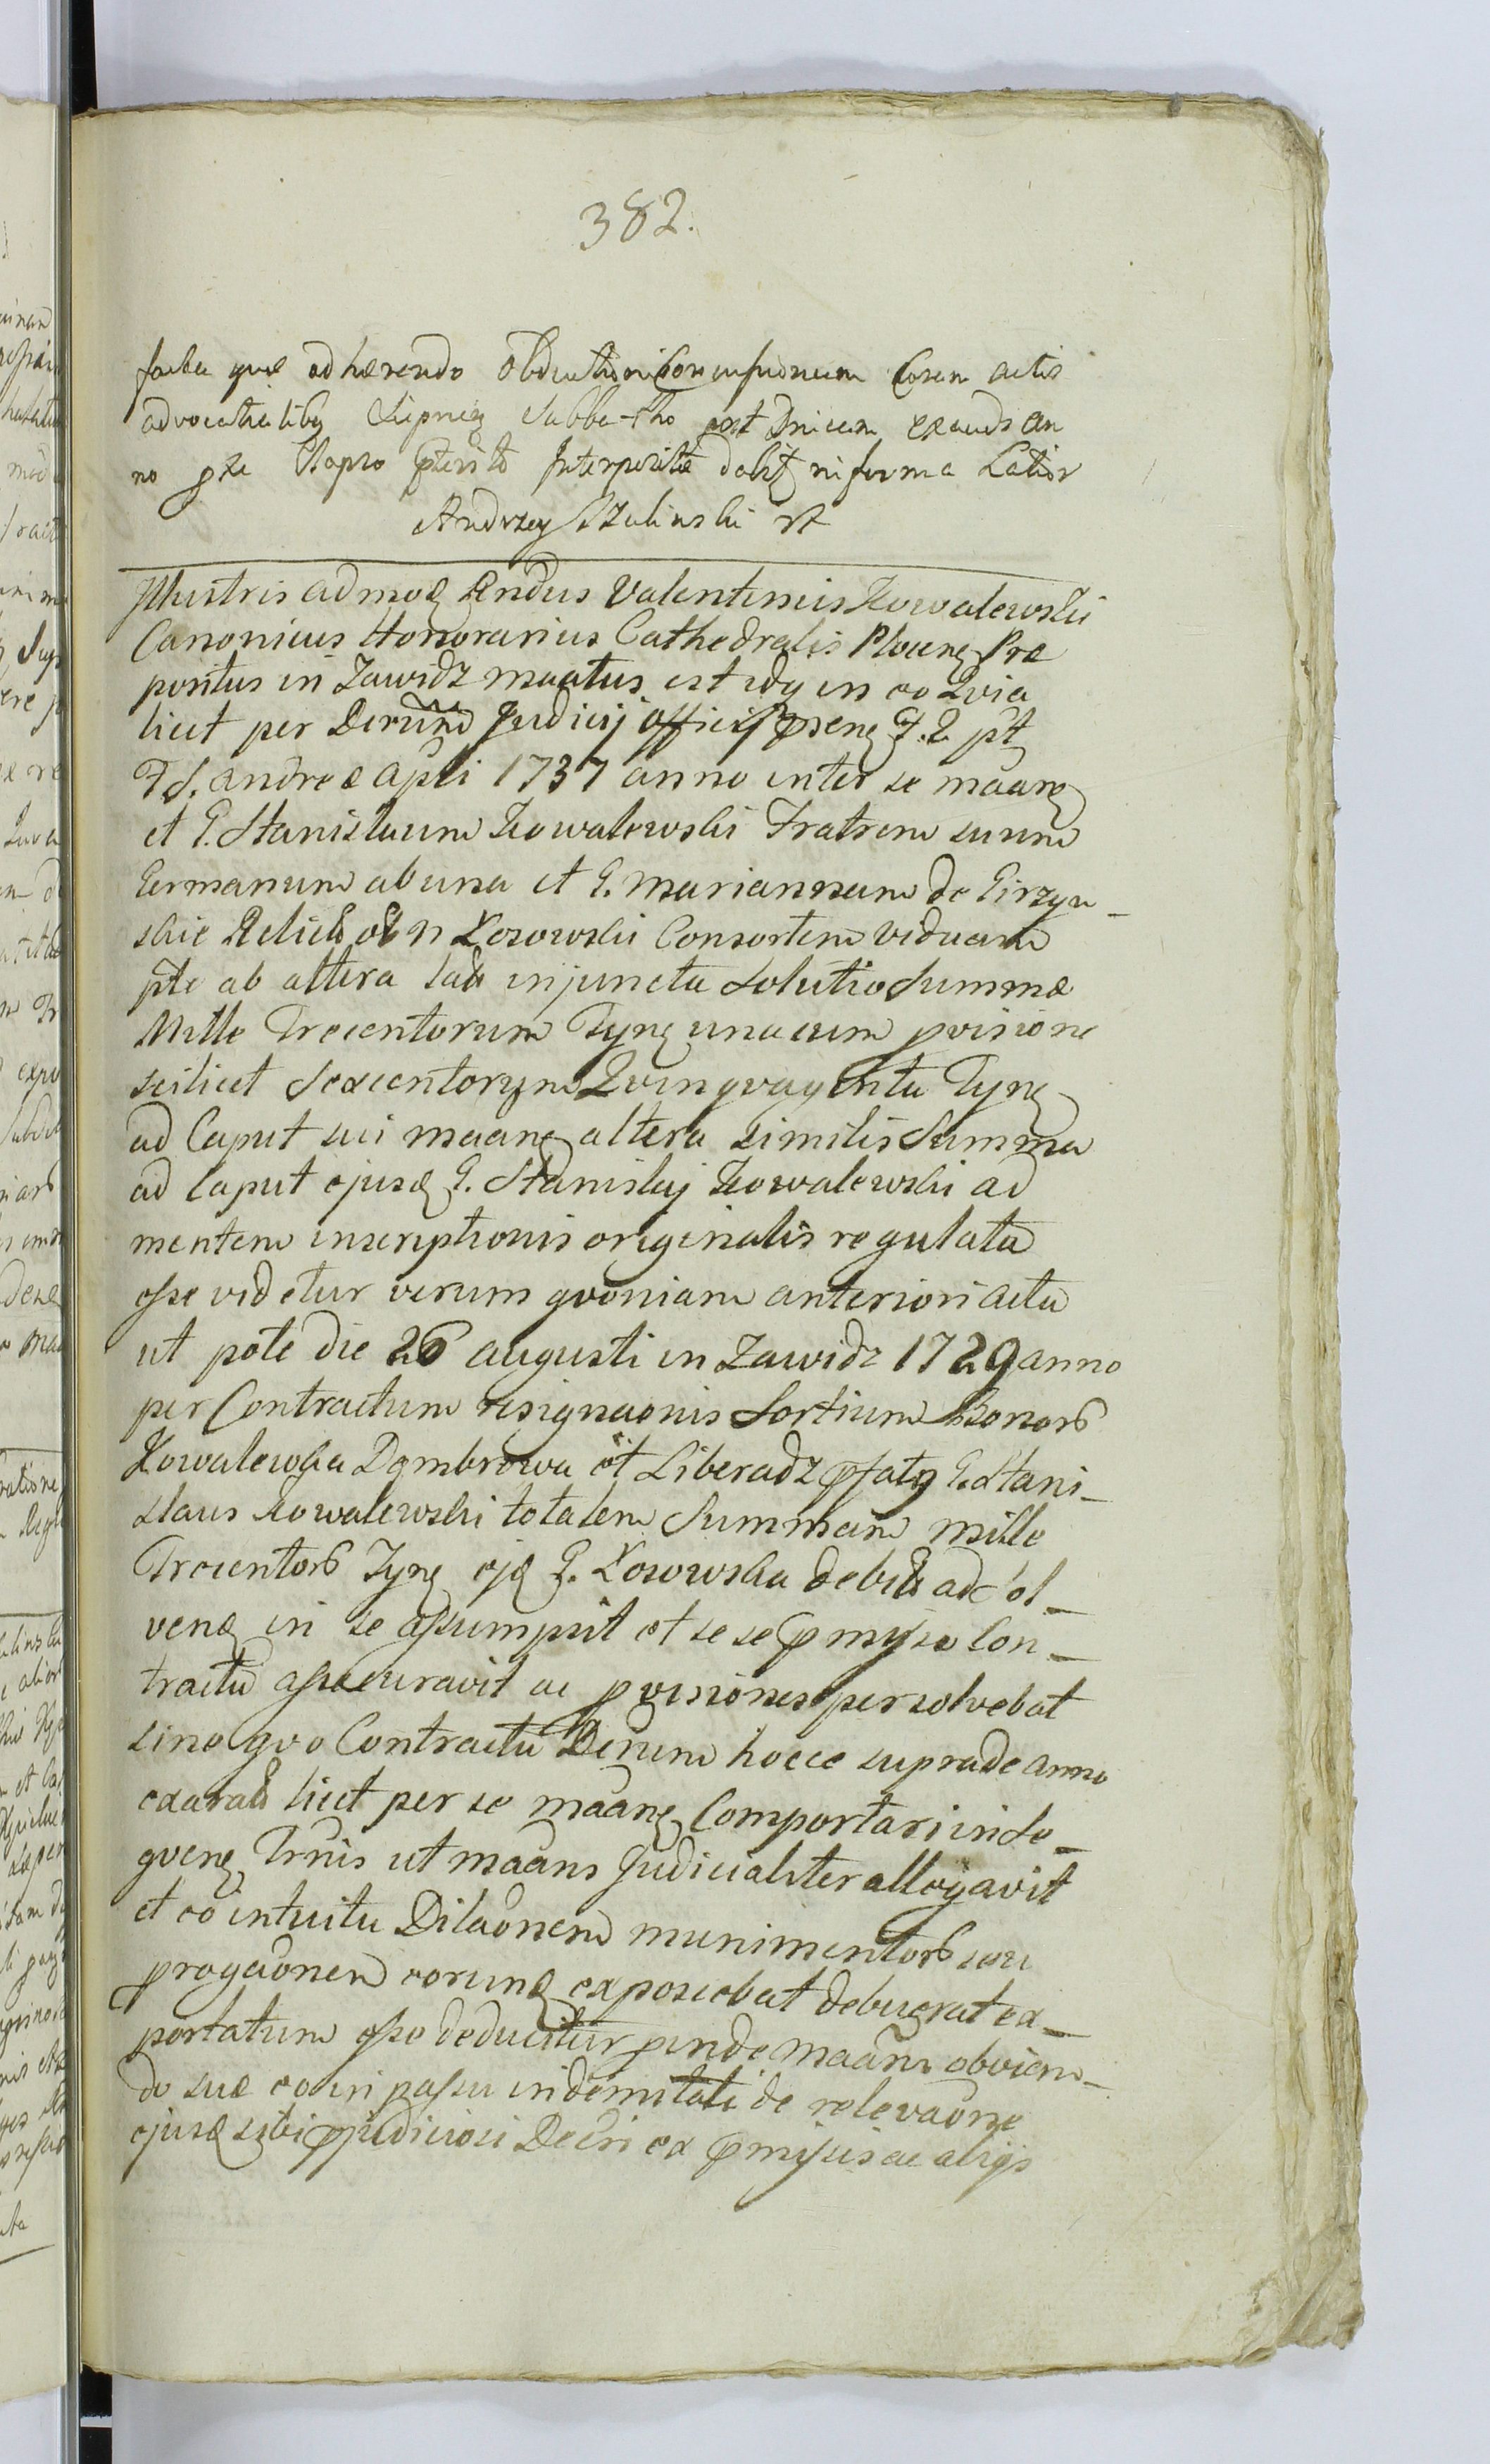 382.
facta quæ adhærendo Obductioni Coram actis
advocatialibus Lipnen Sabbatho post Dnicam exaudi an
no pte elapso pterito Interposita dabit in forma Latior
Andrzey Szulinski
Jllustris admodm Rndus Valentinus Kowalewski
Canonicus Honorarius Cathedralis Plocens Præ
positus in Zawidz maatus est idq in eo Qvia
licet per Derum Judicij officij psens F. 2 pt
F S. Andreæ Apli 1737 anno inter se maane
et G. Stanislaum Kowalewski Fratrem suum
Germanum ab una et G. Mariannam de Girzyn_
skie Relicta ol n Kosowski Consortem viduam
pte ab altera lata injuncta Solutio Summæ
Mille Trecentorum Tyn una cum pvisione
scilicet Sexcentorum Qvinqvaginta Tyn
ad Caput sui maane altera similis Summa
ad Caput ejusd G. Stanislaj Kowalewski ad
mentem inscriptionis originalis regulata
esse videtur verum qvoniam anteriori actu
ut pote die 26 Augusti in Zawidz 1729 anno
per Contractum resignaonis Sortium Bonor
Kowalewka Dombrowa et Liberadz pfatg G. Stani_
slaus Kowalewski totalem Summam mille
Trecentor Tyn ejd G. Kosowska debita ad e_ol_
vend in se assumpsit et se se pmisso Con_
tractu assecuravit ac pvisiones persolvebat
sine qvo Contractu Derum hocce supra de anno
exarat licet per se maane Comportari in Se_
qven Trnis ut maans Judicialiter allegavit
et eo intuitu Dilaonem munimentor seu
progaonem eorund exposcebat debuerat ex_
portatum esse deducitur pinde maans obvian_
do suæ eo in passu indemnitati de relevaone
ejusd sibi pjudiciosi Decri ex pmissis ac alijs